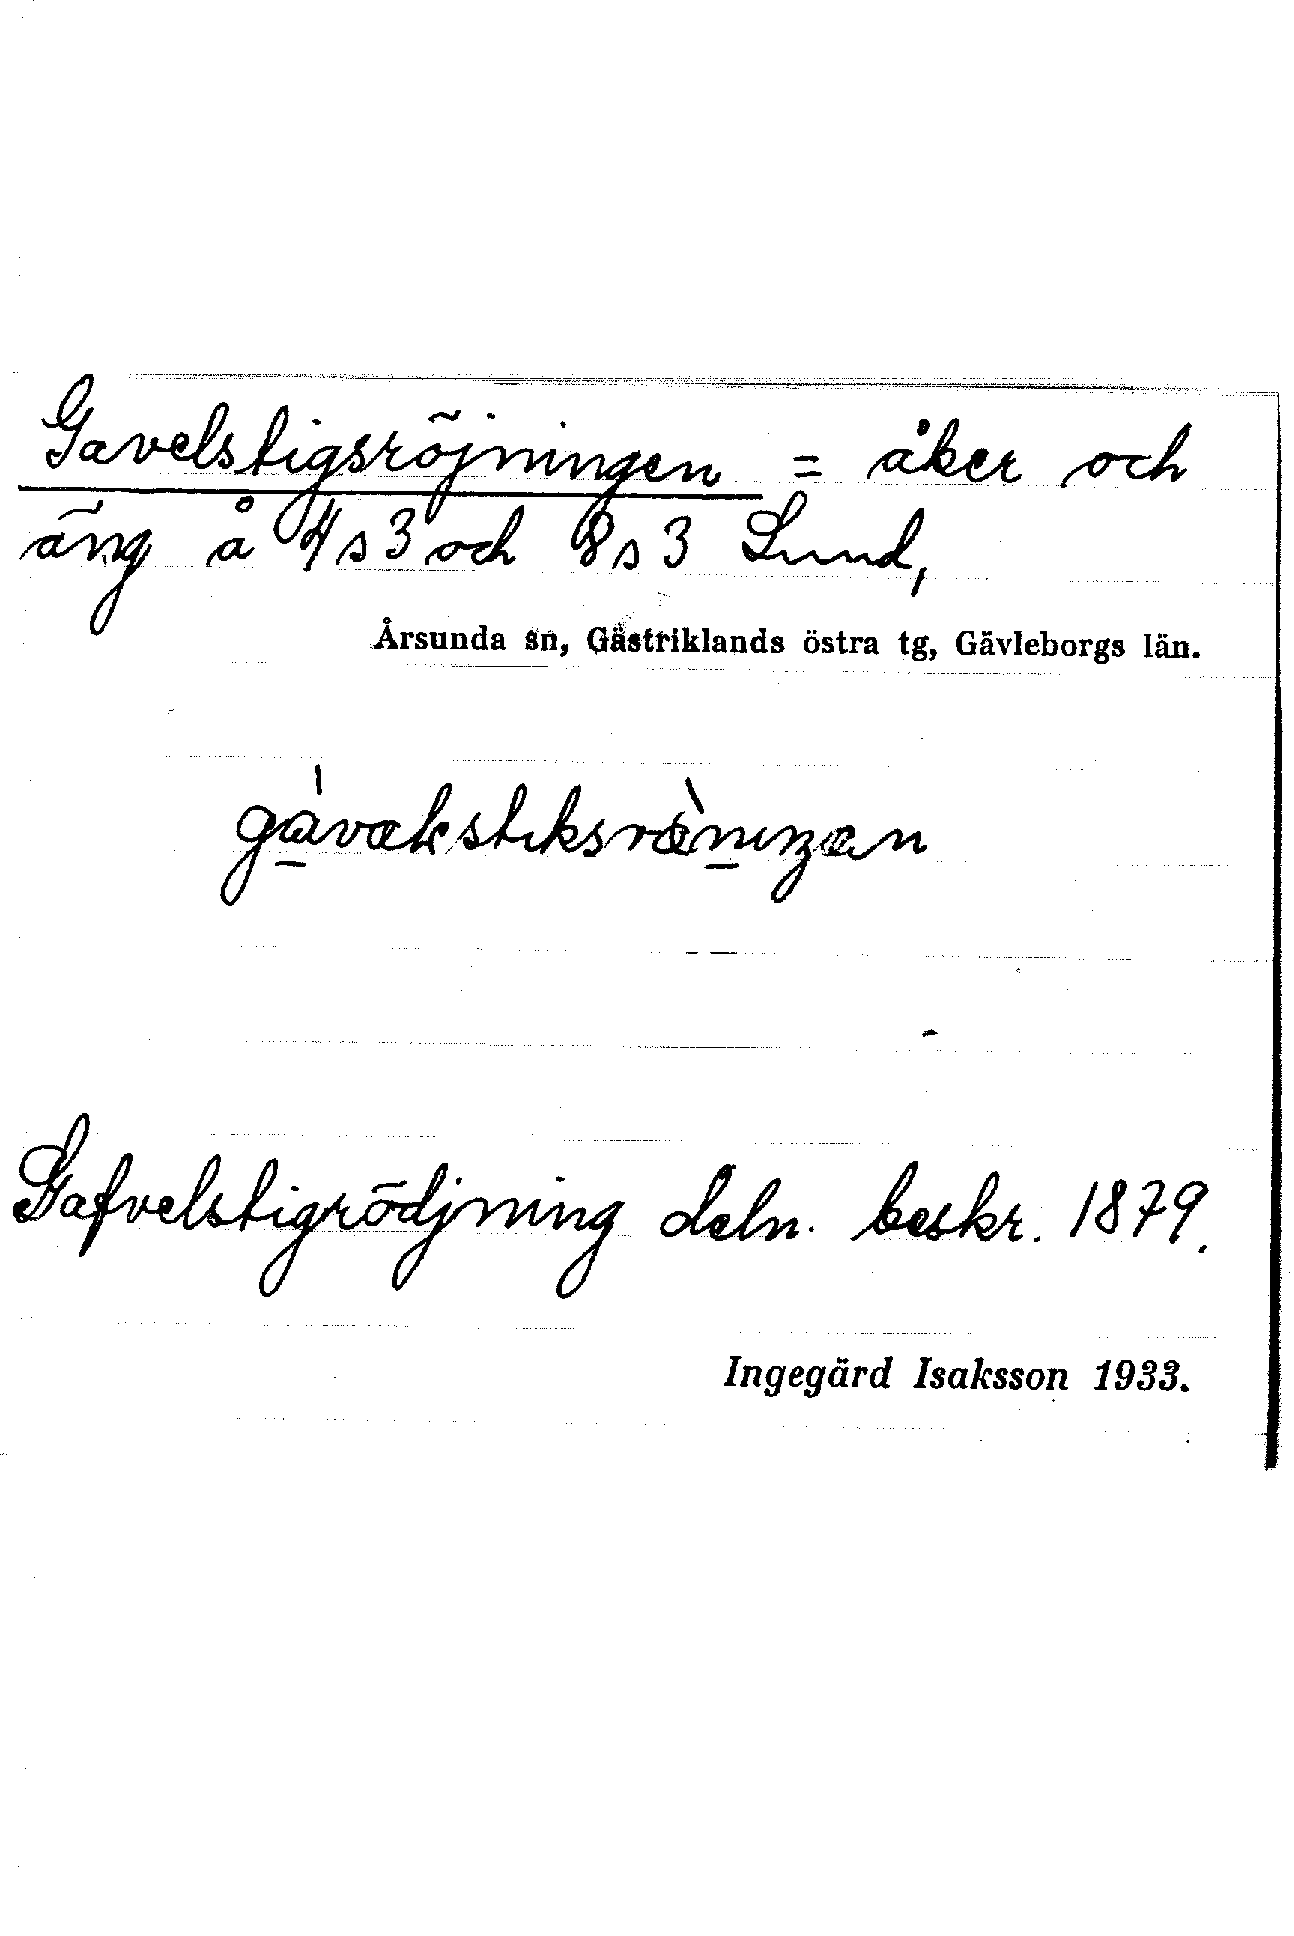 Gavelstigsröjningen = åker och
äng å 4 s 3 och 8 s 3 Lund,
Årsunda sn, Gästriklands östra tg, Gävleborgs län.
Gafvelstigrödjning deln. beskr. 1879.
Ingegärd Isaksson 1933.